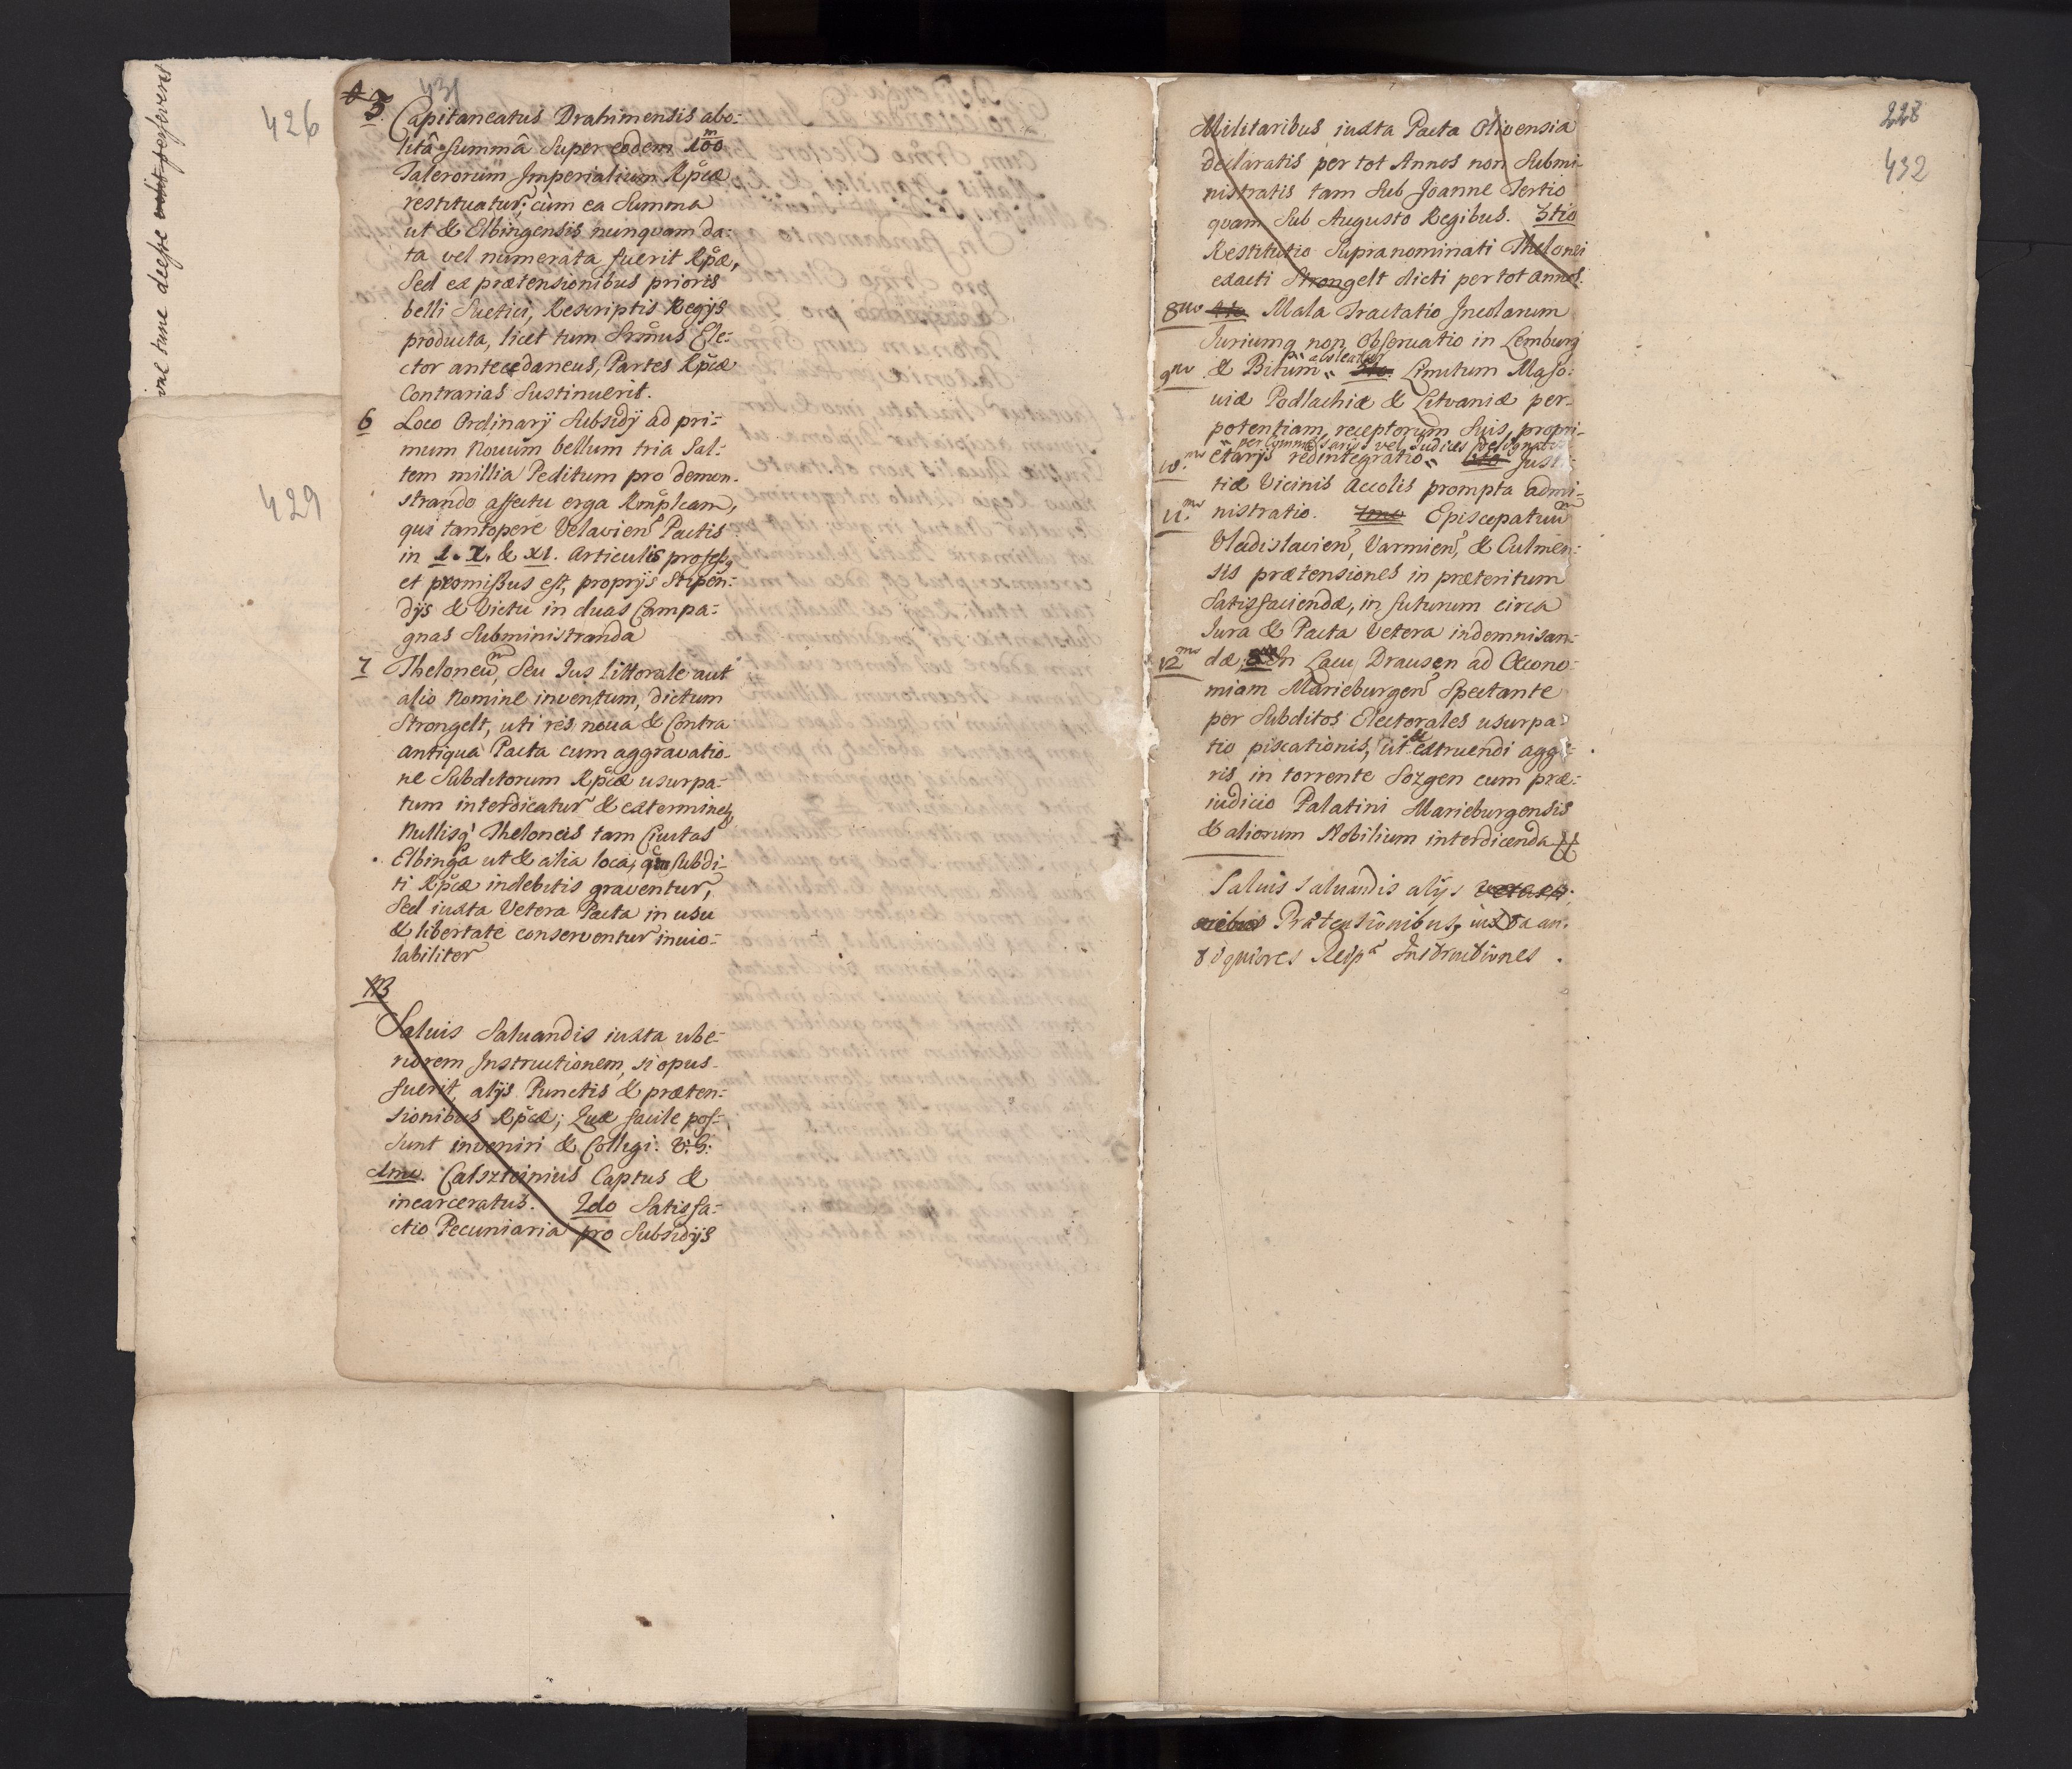 426
429
431
5
Capitaneatus Drahimensis abo:
litâ summâ super eodem 100 m
Talerorum Imperialium Rpcæ
restituatur; cum ea Summa
ut & Elbingensis nunquam da:
ta vel numerata fuerit Rpcæ,
Sed ex prætensionibus prioris
belli Suetici, Rescriptis Regijs
producta, licet tum Srmus Ele:
ctor antecedaneus, Partes Rpcæ
Contrarias Sustinuerit.
6 Loco Ordinarij Subsidij ad pri:
mum Novum bellum tria Sal:
tem millia Peditum pro demon:
strando affectu erga Rmplcam,
qui tantopere Velavien Pactis
in 1. X. & XI. Articulis
et promissus est, proprijs Stipen:
dijs & Victu in duas Campa:
gnas Subministranda
7 Theloneum, Seu Jus littorale aut
alio Nomine inventum, dictum
Strongelt, uti res nova & Contra
antiqua Pacta cum aggravatio:
ne Subditorum Rpcæ usurpa:
tum interdicatur &
Nullisq Theloneis tam Civitas
Elbinga ut & alia loca, Subdi:
ti Rpcæ indebitis graventur,
Sed iuxta Vetera Pacta in usu
& libertate conserventur invio:
labiliter
NB
Salvis Salvandis iuxta ube:
riorem Instructionem, si opus
fuerit, alijs Punctis & præten:
sionibus Rpcæ; Quæ facile pos:
sunt inveniri & Colligi: V: G:
1mo. Calszteinius Captus &
incarceratus. 2do Satisfa:
ctio Pecuniaria pro Subsidijs
228
432
Militaribus iuxta Pacta Olivensia
declaratis per tot Annos non Submi:
nistratis tam Sub Joanne Tertio
quam Sub Augusto Regibus. 3tio
Restitutio Supranominati Thelonei
exacti Strongelt dicti per tot annos.
8vo 4to Mala Tractatio Incolarum
Juriumq non Observatio in Lemburg
9no & Bitum Limitum Maso:
viæ Podlachiæ & Litvaniæ per
potentiam receptorum Suis, propri:
per Commissarios vel Judices designatos
10mo etarijs redintegratio Justi:
tiæ Vicinis Accolis prompta admi:
11mo nistratio. 7mo Episcopatuum
Vladislavien, Varmien, & Culmen:
sis prætensiones in præteritum
Satisfaciendæ, in futurum circa
Jura & Pacta Vetera indemnisan:
12mo dæ, 8vo In Lacu Drausen ad Œcono:
miam Marieburgen Spectante
per Subditos Electorales usurpa:
tio piscationis, ut & extruendi agge:
ris in torrente Sorgen cum præ:
iudicio Palatini Marieburgensis
& aliorum Nobilium interdicenda
Salvis salvandis alijs
Prætensionibus, iuxta an:
tiquiores Reip Instructiones.